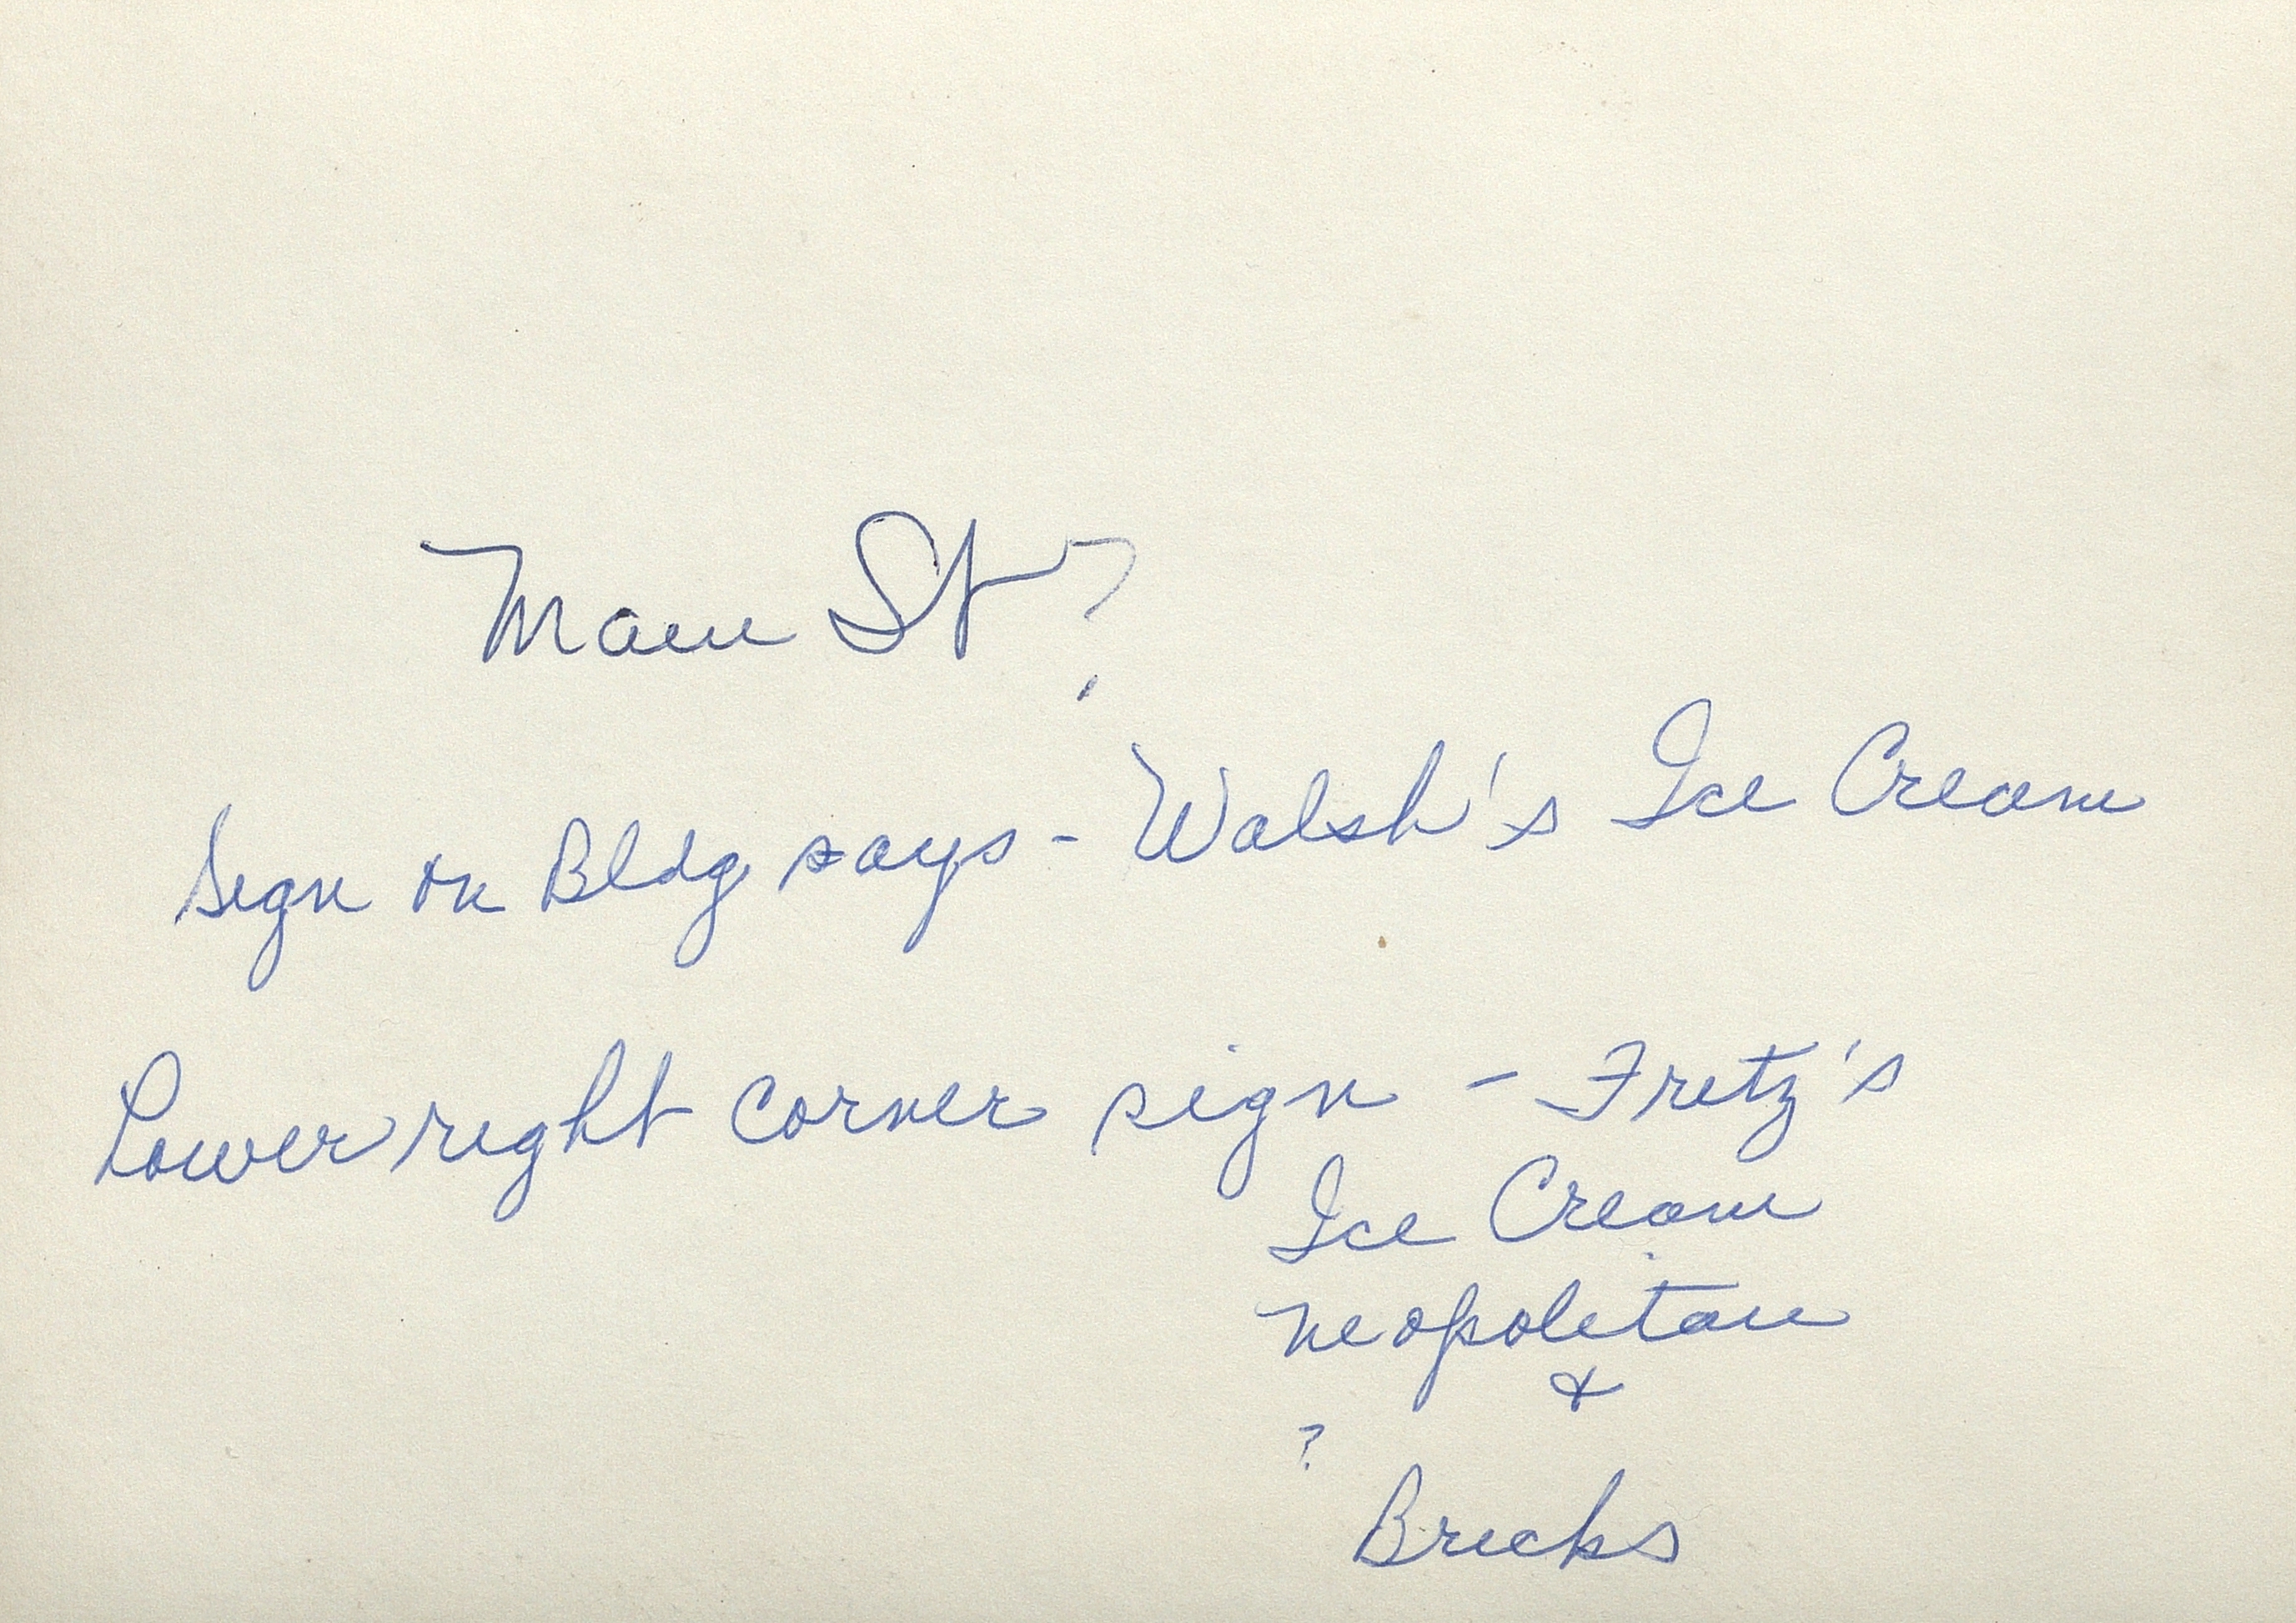 Main St?
Sign on Bldg says - Walsh's Ice Cream
Lower right corner sign - Fretz's
Ice Cream
Neopolitan
&
?
Bricks